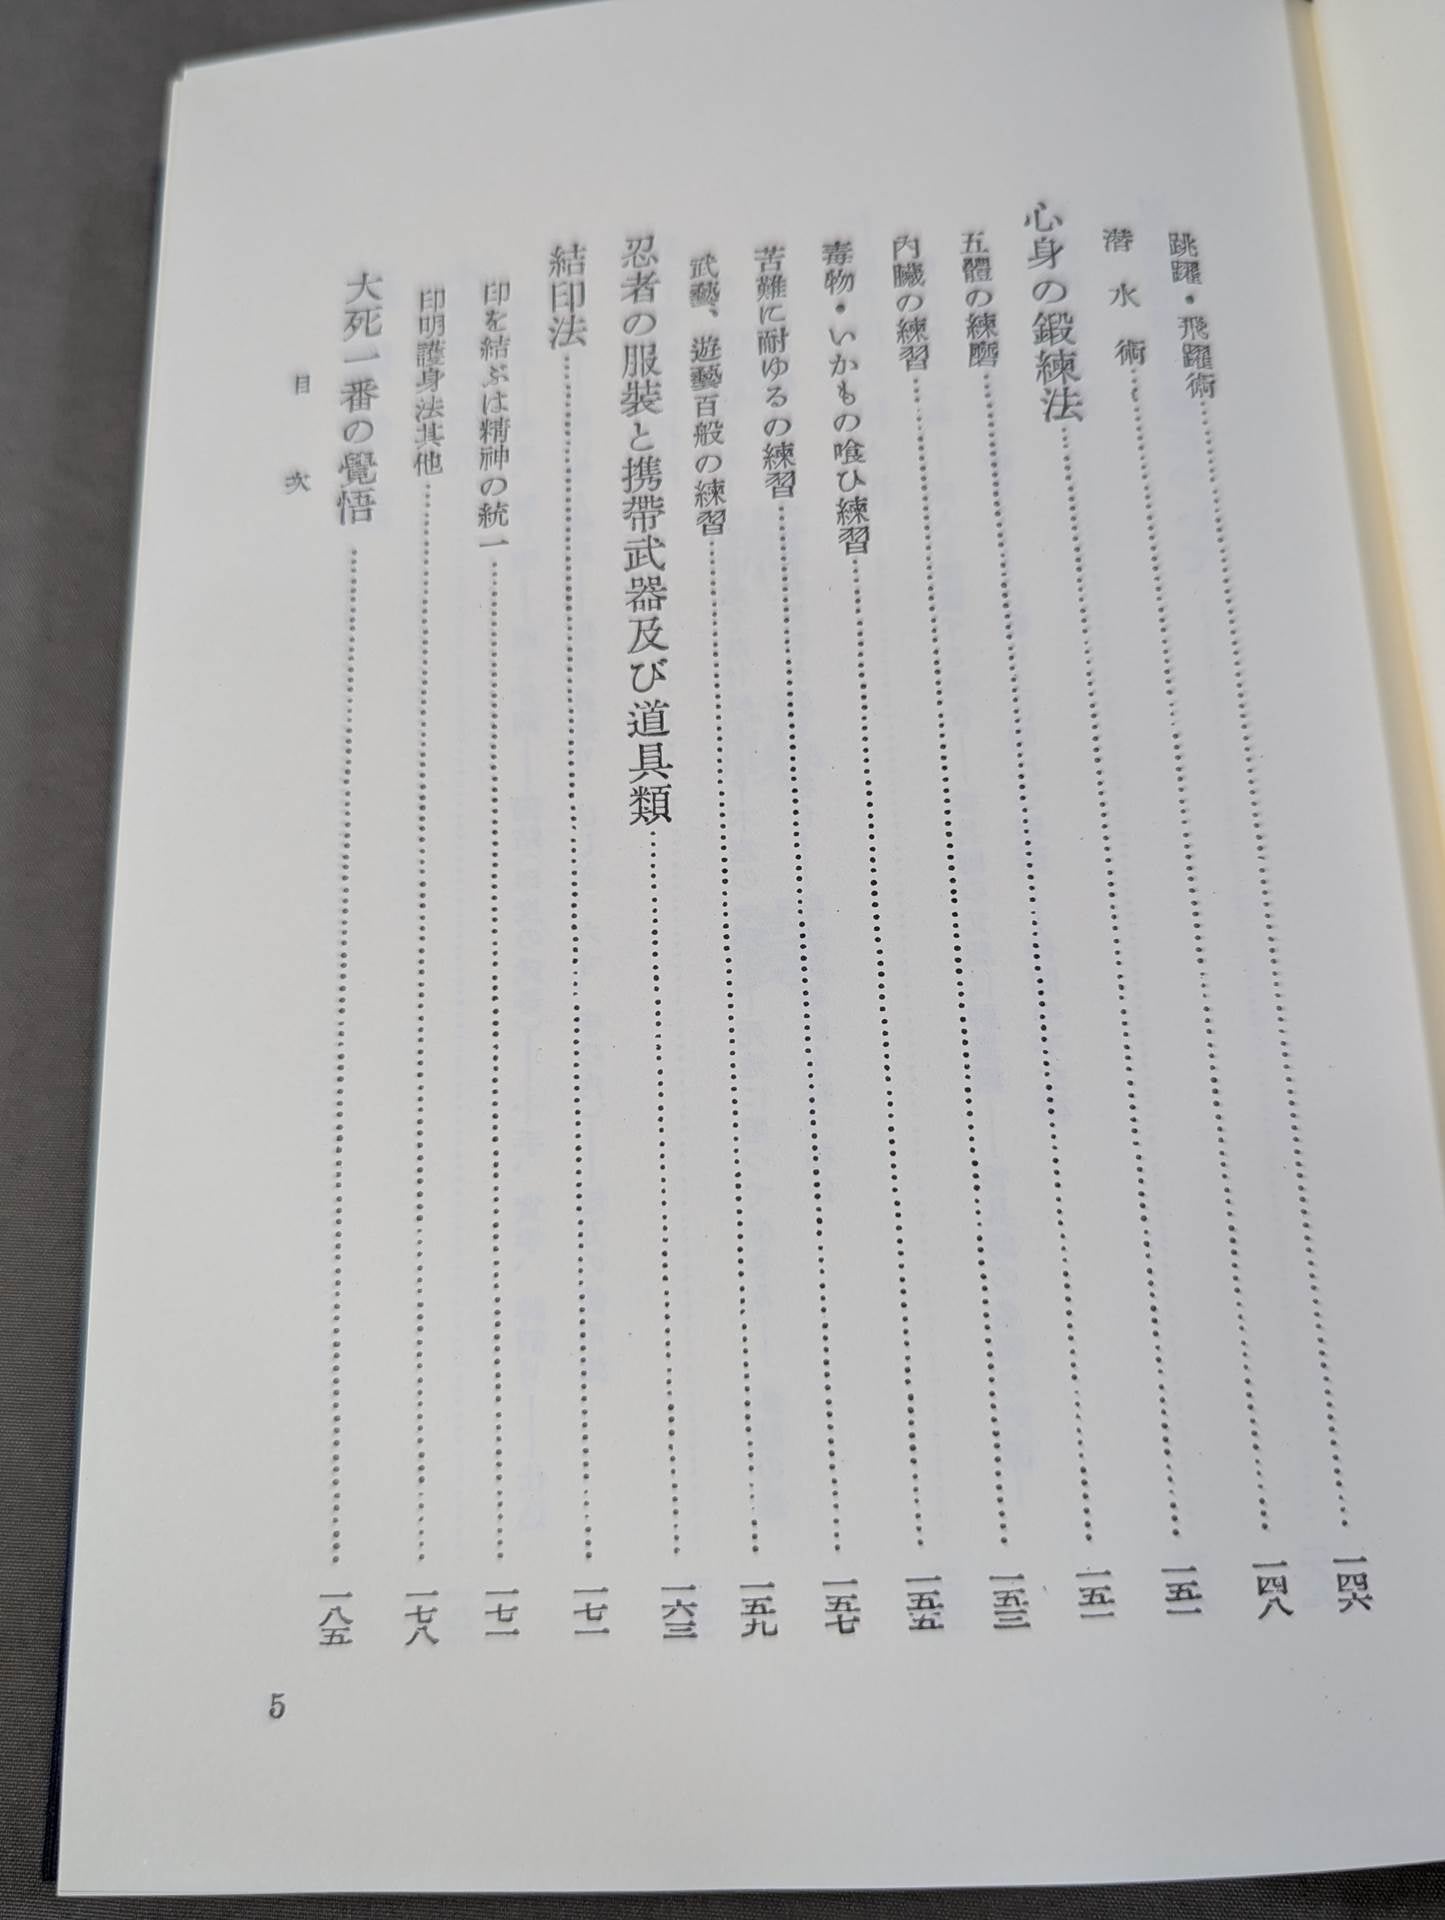 跳躍・飛躍術…………一四六
潜水術…………一四八
心身の鍛練法…………一五一
五體の練磨…………一五一
内臓の練習…………一五三
毒物・いかもの喰ひ練習…………一五五
苦難に耐ゆるの練習…………一五七
武藝、遊藝百般の練習…………一五九
忍者の服裝と携帶武器及び道具類…………一六三
結印法…………一七一
印を結ぶは精神の統一…………一七一
印明護身法其他…………一七八
大死一番の覺悟…………一八五
目次
5